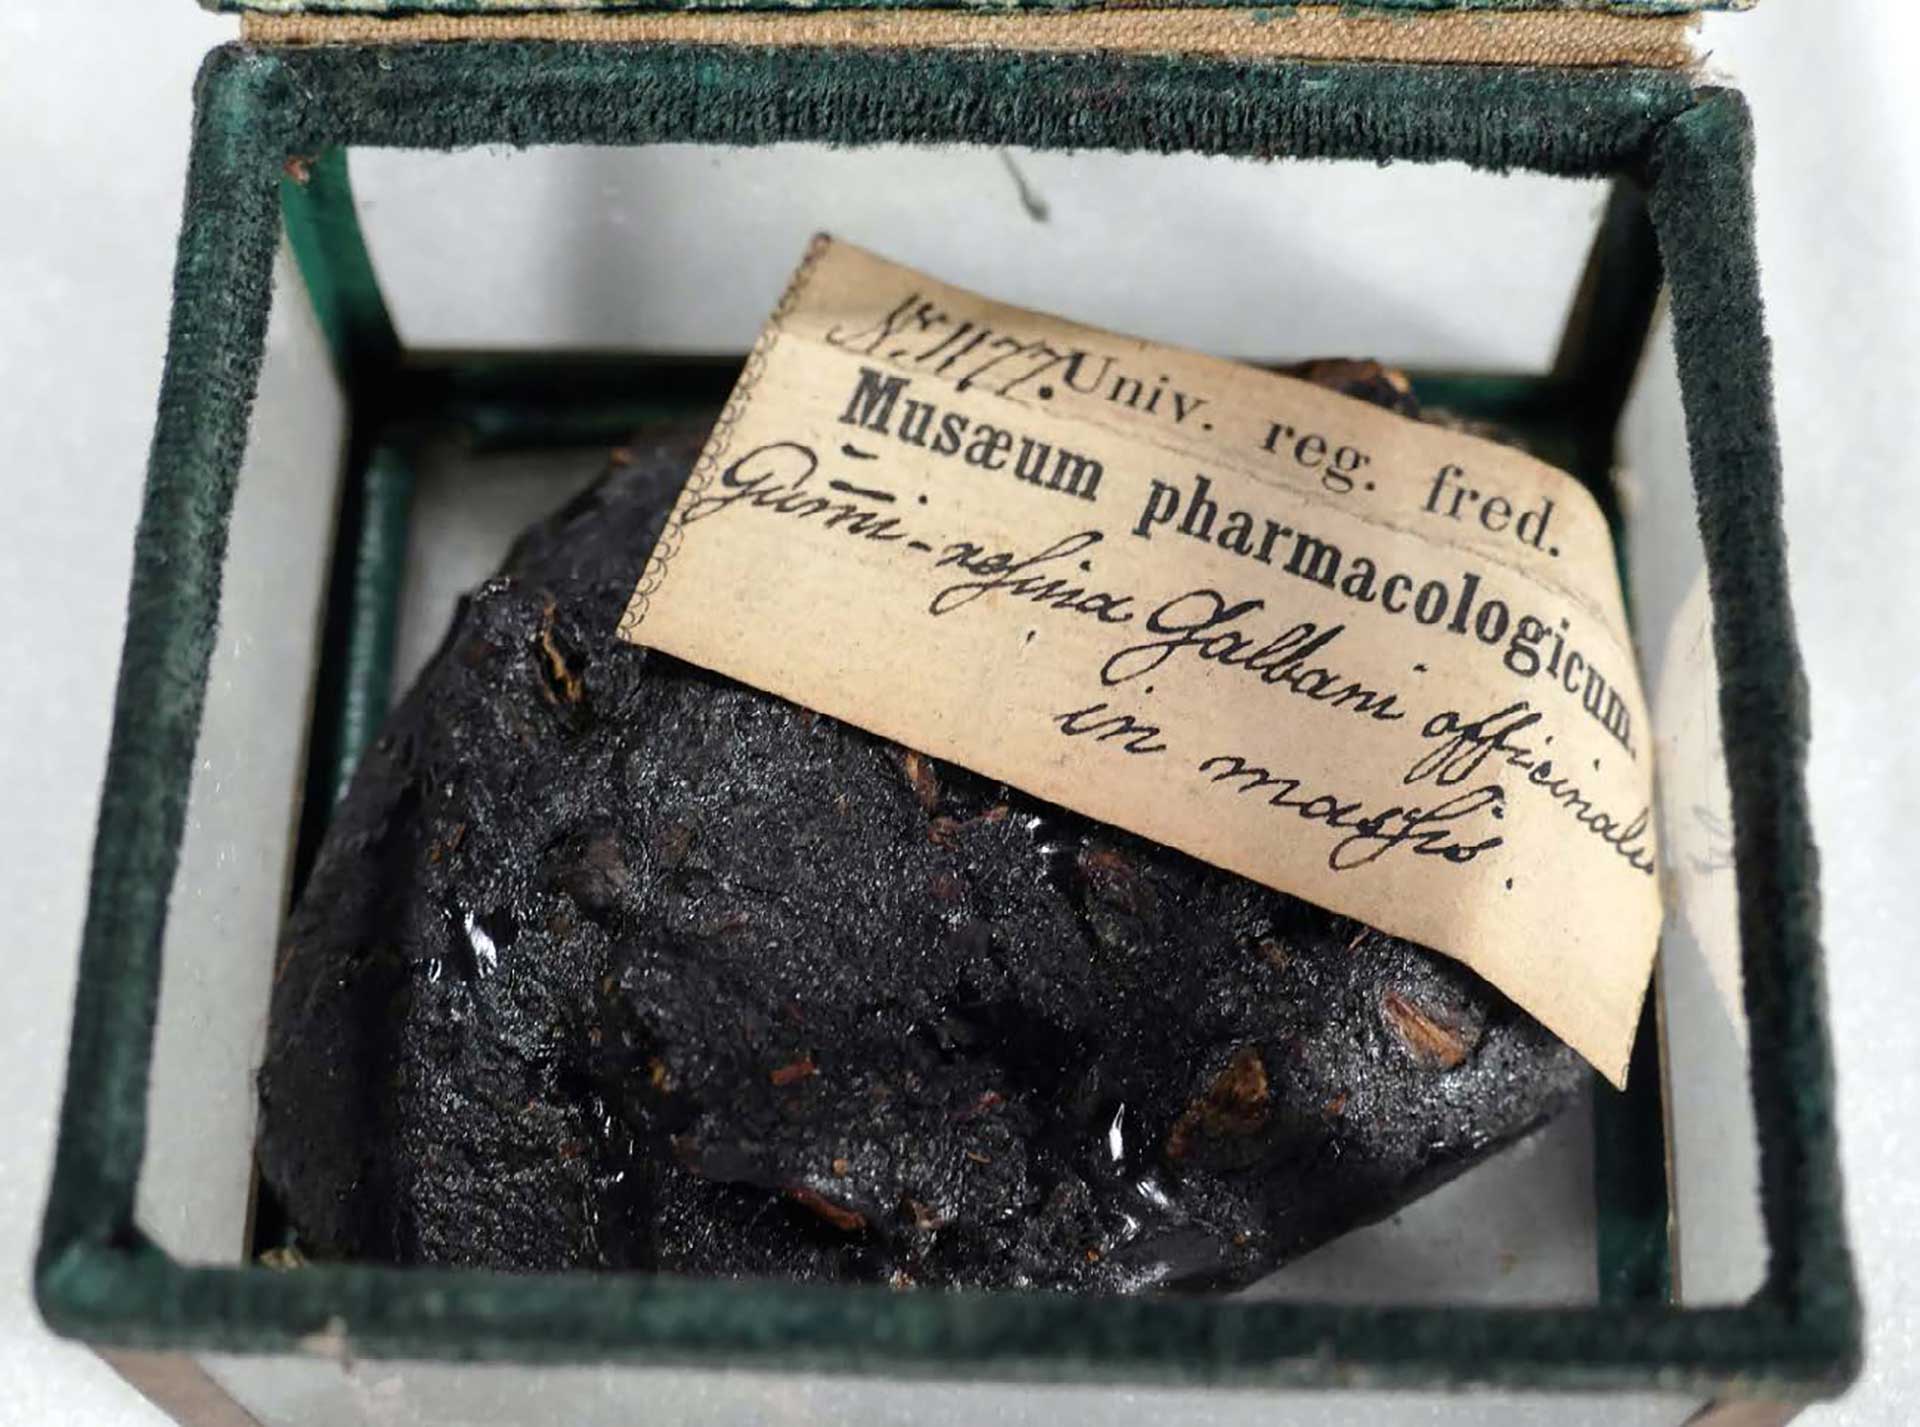 Nr. 1177. Univ. reg. fred.
Musæum pharmacologicum.
Gum̅i-resina Galbani officinalis
in massis.